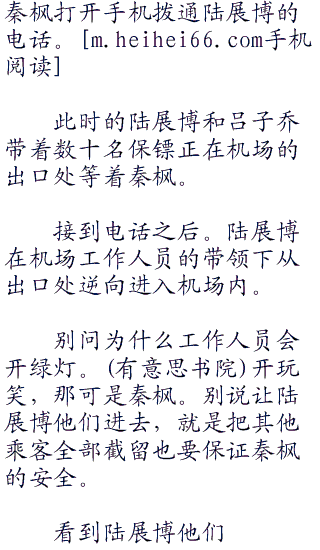 秦枫打开手机拨通陆展博的
电话。[m.heihei66.com手机
阅读]
此时的陆展博和吕子乔
带着数十名保镖正在机场的
出口处等着秦枫。
接到电话之后。陆展博
在机场工作人员的带领下从
出口处逆向进入机场内。
别问为什么工作人员会
开绿灯。(有意思书院)开玩
笑，那可是秦枫。别说让陆
展博他们进去，就是把其他
乘客全部截留也要保证秦枫
的安全。
看到陆展博他们